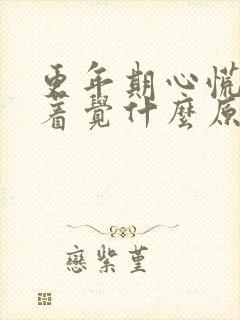 更年期心慌
着覺什麼原
戀紫堇